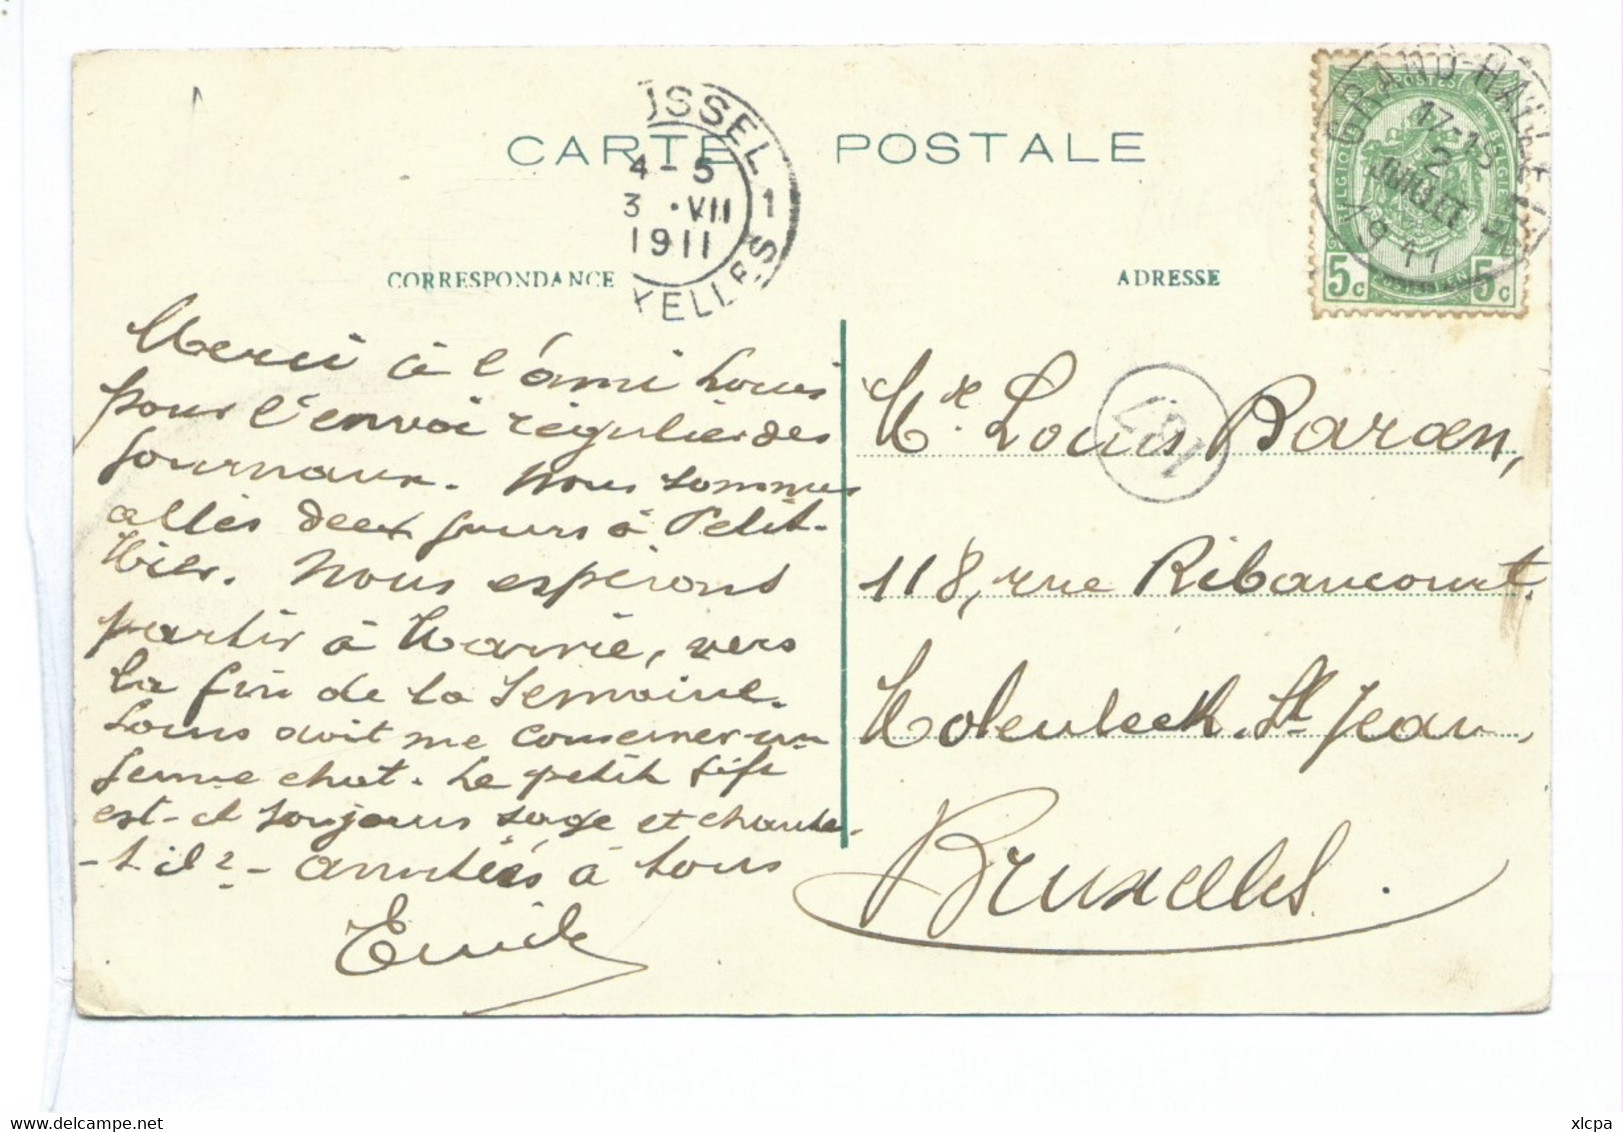 CARTE POSTALE
CORRESPONDANCE
ADRESSE
USSEL 1
4-5
3 . VII
1911
XELLES
GRAND-HALLE
17-18
2
JUILLET
1911
POSTES
BELGIQUE
BELGIË
5c 5c
187
Merci à l'ami Louis
pour l'envoi régulier des
journaux. Nous sommes
allés deux jours à Petit-
Hier. Nous espérons
partir à Warnie, vers
la fin de la semaine.
Louis doit me conserver un
jeune chat. Le petit fifi
est-il toujours sage et chante-
-t-il ? - amitiés à tous
Emile
Mr. Louis Baran,
118, rue Ribaucourt.
Molenbeek-St Jean,
Bruxelles.
xlcpa
delcampe.net